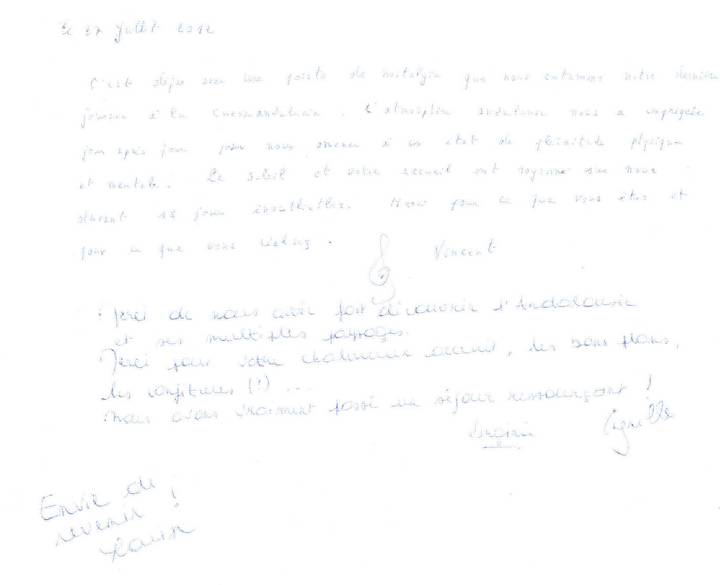 Le 27 Juillet 2012
C'est déjà avec une pointe de nostalgie que nous entamons notre dernière
journée à la . L'atmosphère andalouse nous a imprégnés
jour après jour pour nous amener à un état de plénitude physique
et mentale. Le soleil et votre accueil ont rayonné sur nous
durant 15 jours inoubliables. Merci pour ce que vous êtes et
pour ce que vous .
Vincent
Merci de nous avoir fait découvrir l'Andalousie
et ses multiples paysages.
Merci pour votre chaleureux accueil, les bons plans,
les confitures (!) ...
Nous avons vraiment passé un séjour ressourçant !
Virginie
Envie de
revenir !